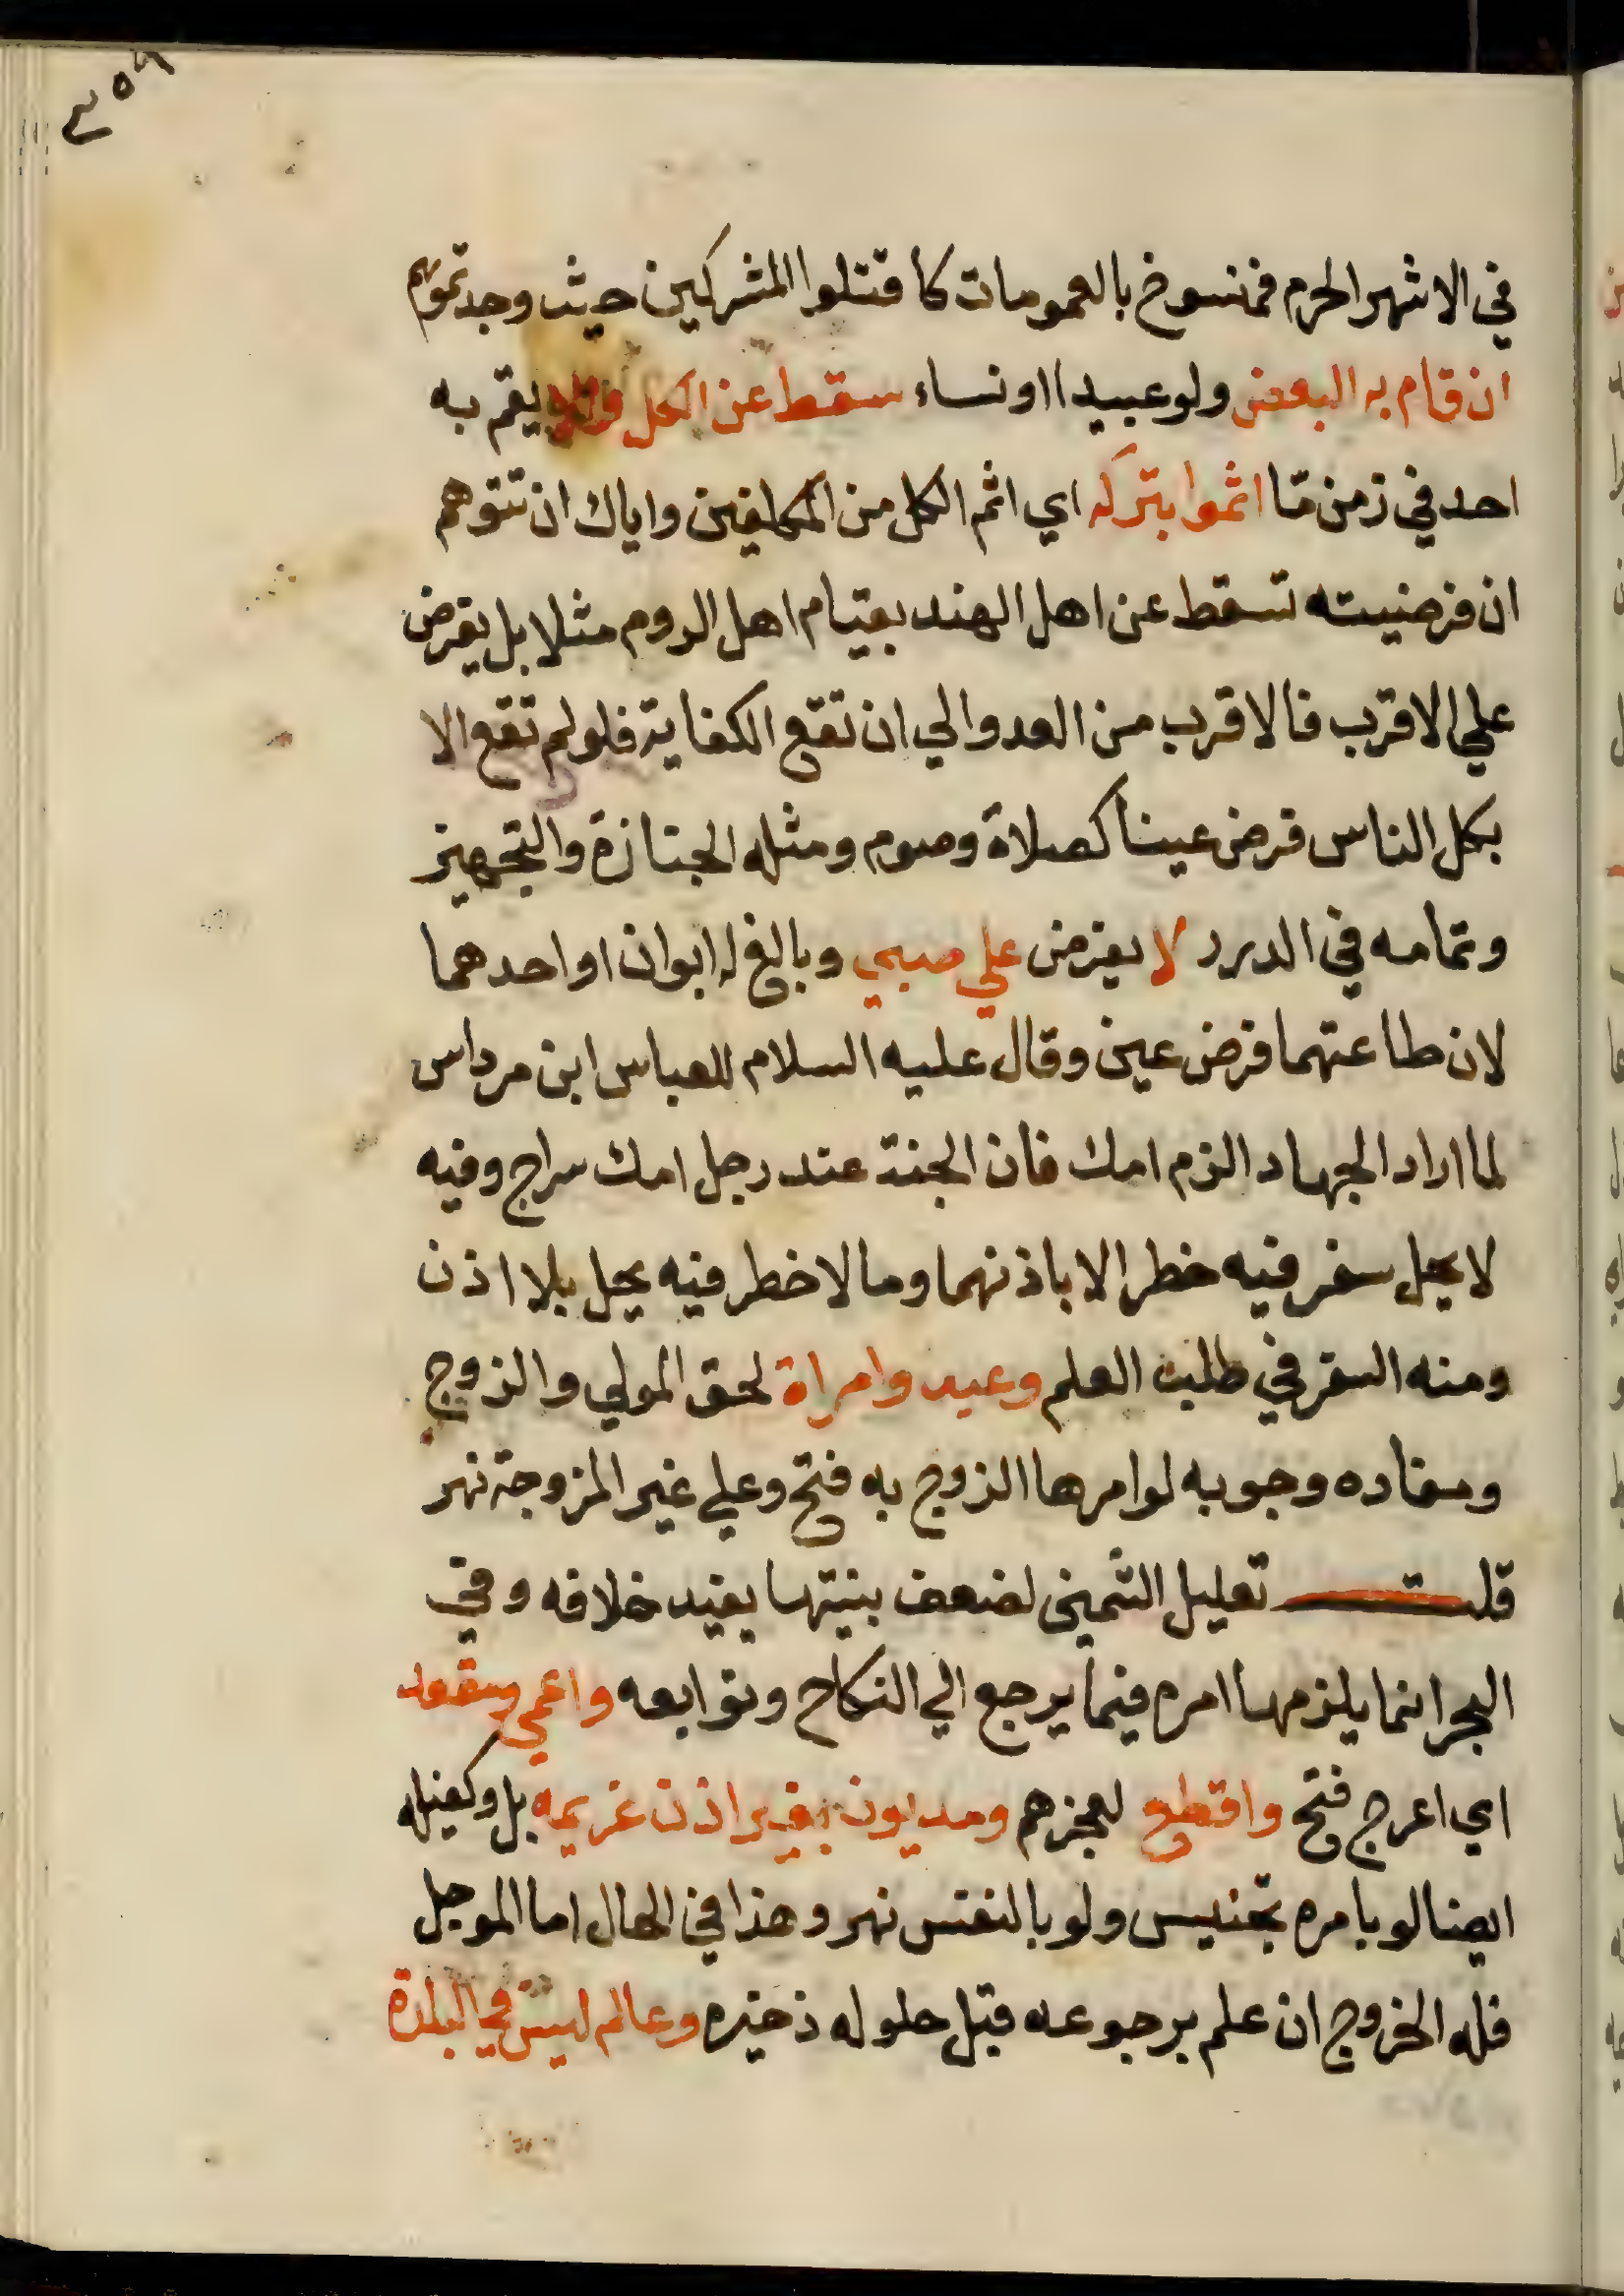 ٣٥٩
في الاشهر الحرم فمنسوخ بالعمومات كاقتلوا المشركين حيث وجدتموهم
ان قام به البعض ولو عبيدا او نساء سقط عن الكل والا يقم به
احد في زمن مّا اثموا بتركه اي اثم الكل من المكلفين واياك ان تتوهم
ان فرضيته تسقط عن اهل الهند بقيام اهل الروم مثلا بل يفرض
علي الاقرب فالاقرب من العدو الي ان تقع الكفاية فلو لم تقع الا
بكل الناس فرض عينا كصلاة وصوم ومثله الجنازة والتجهيز
وتمامه في الدرر لا يفرض علي صبي وبالغ له ابوان او احدهما
لان طاعتهما فرض عين وقال عليه السلام للعباس ابن مرداس
لما اراد الجهاد الزم امك فان الجنة عند رجل امك سراج وفيه
لا يحل سفر فيه خطر الا باذنهما وما لا خطر فيه يحل بلا اذن
ومنه السفر في طلب العلم وعبد وامراة لحق المولي والزوج
ومفاده وجوبه لو امرها الزوج به فتح وعلي غير المزوجة نهر
قلت تعليل الشمني لضعف بنيتها يفيد خلافه وفي
البحر انما يلزمها امره فيما يرجع الي النكاح وتوابعه واعمي ومقعد
اي اعرج فتح واقطع لعجزهم ومديون بغير اذن غريمه بل وكفيله
ايضا لو بامره تجنيس ولو بالنفس نهر وهذا في الحال اما الموجل
فله الخروج ان علم برجوعه قبل حلوله ذخيره وعالم ليس في البلدة